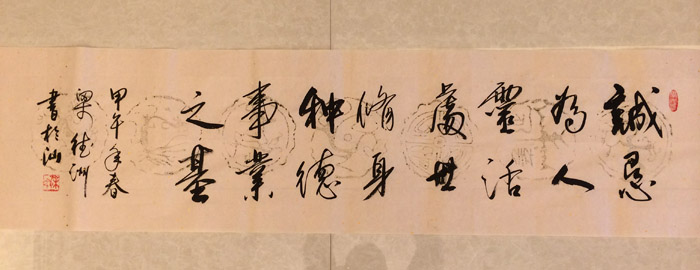 誠恳
為人
靈活
處世
脩身
种德
事業
之基
甲午年春
梁
書於汕